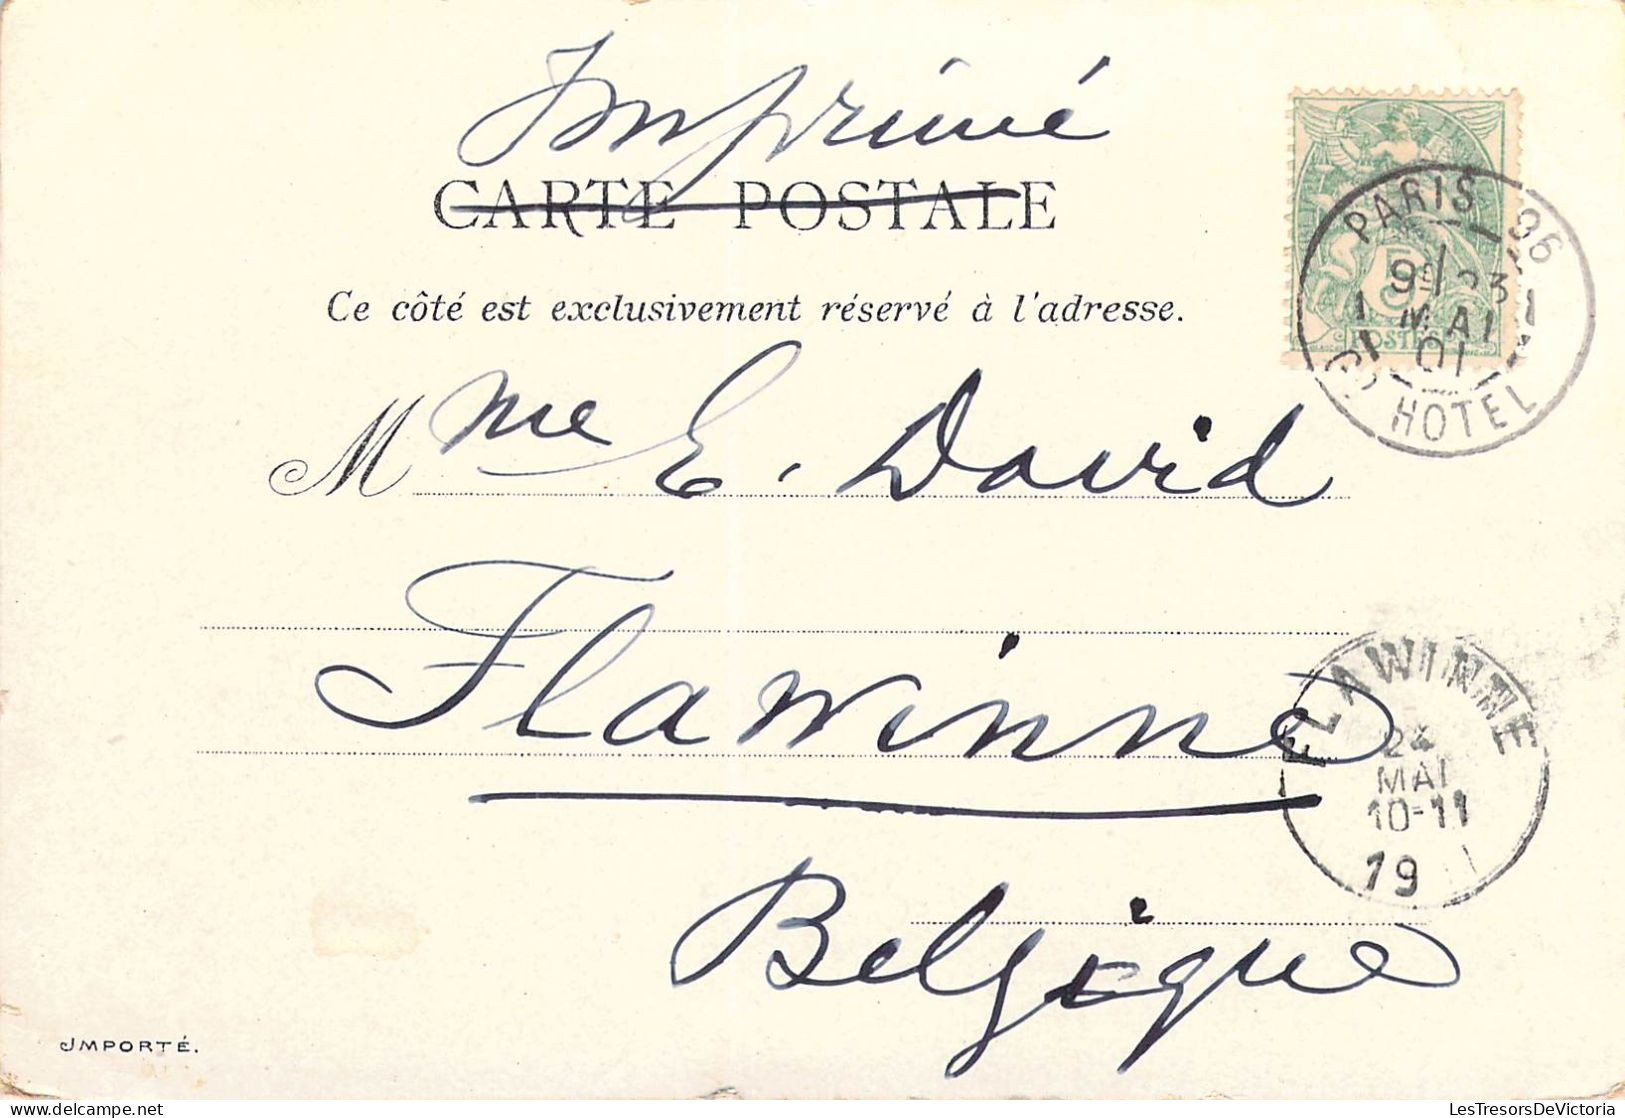 Imprimé
CARTE POSTALE
Ce côté est exclusivement réservé à l'adresse.
Mme E. David
Flawinne
Belgique
JMPORTÉ.
5c
POSTES
PARIS 96
23
MAI
01
HOTEL
FLAWINNE
24
MAI
10-11
19
LesTresorsDeVictoria